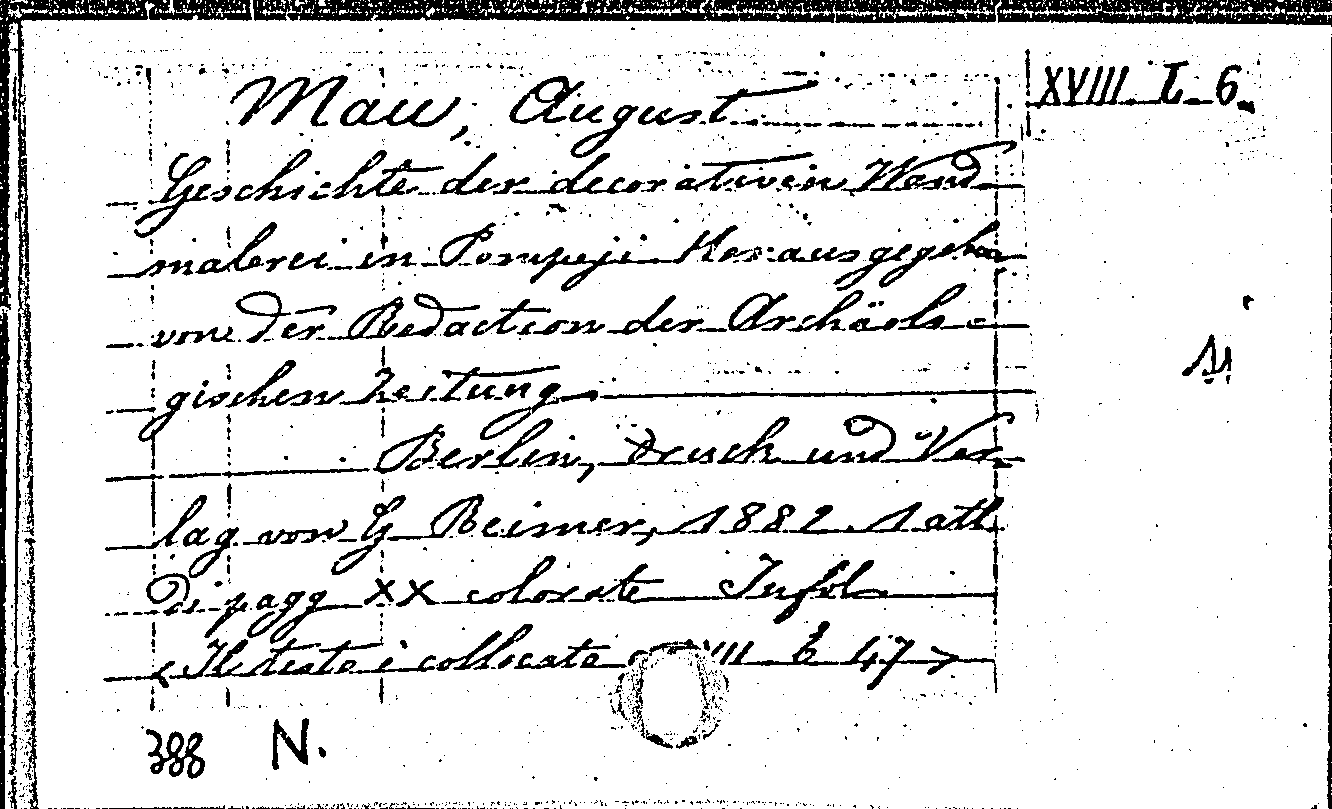 Mau, August
XVIII. 6.
Geschichte der decorativen Wand-
malerei in Pompeji Herausgegeben
von der Redaction der Archäolo-
gischen Zeitung.
Berlin, Druck und Ver-
lag von G Reimer, 1882. 1 atl.
di pagg XX colorate In fol.
<Il testo è collocato 47>
388 N.